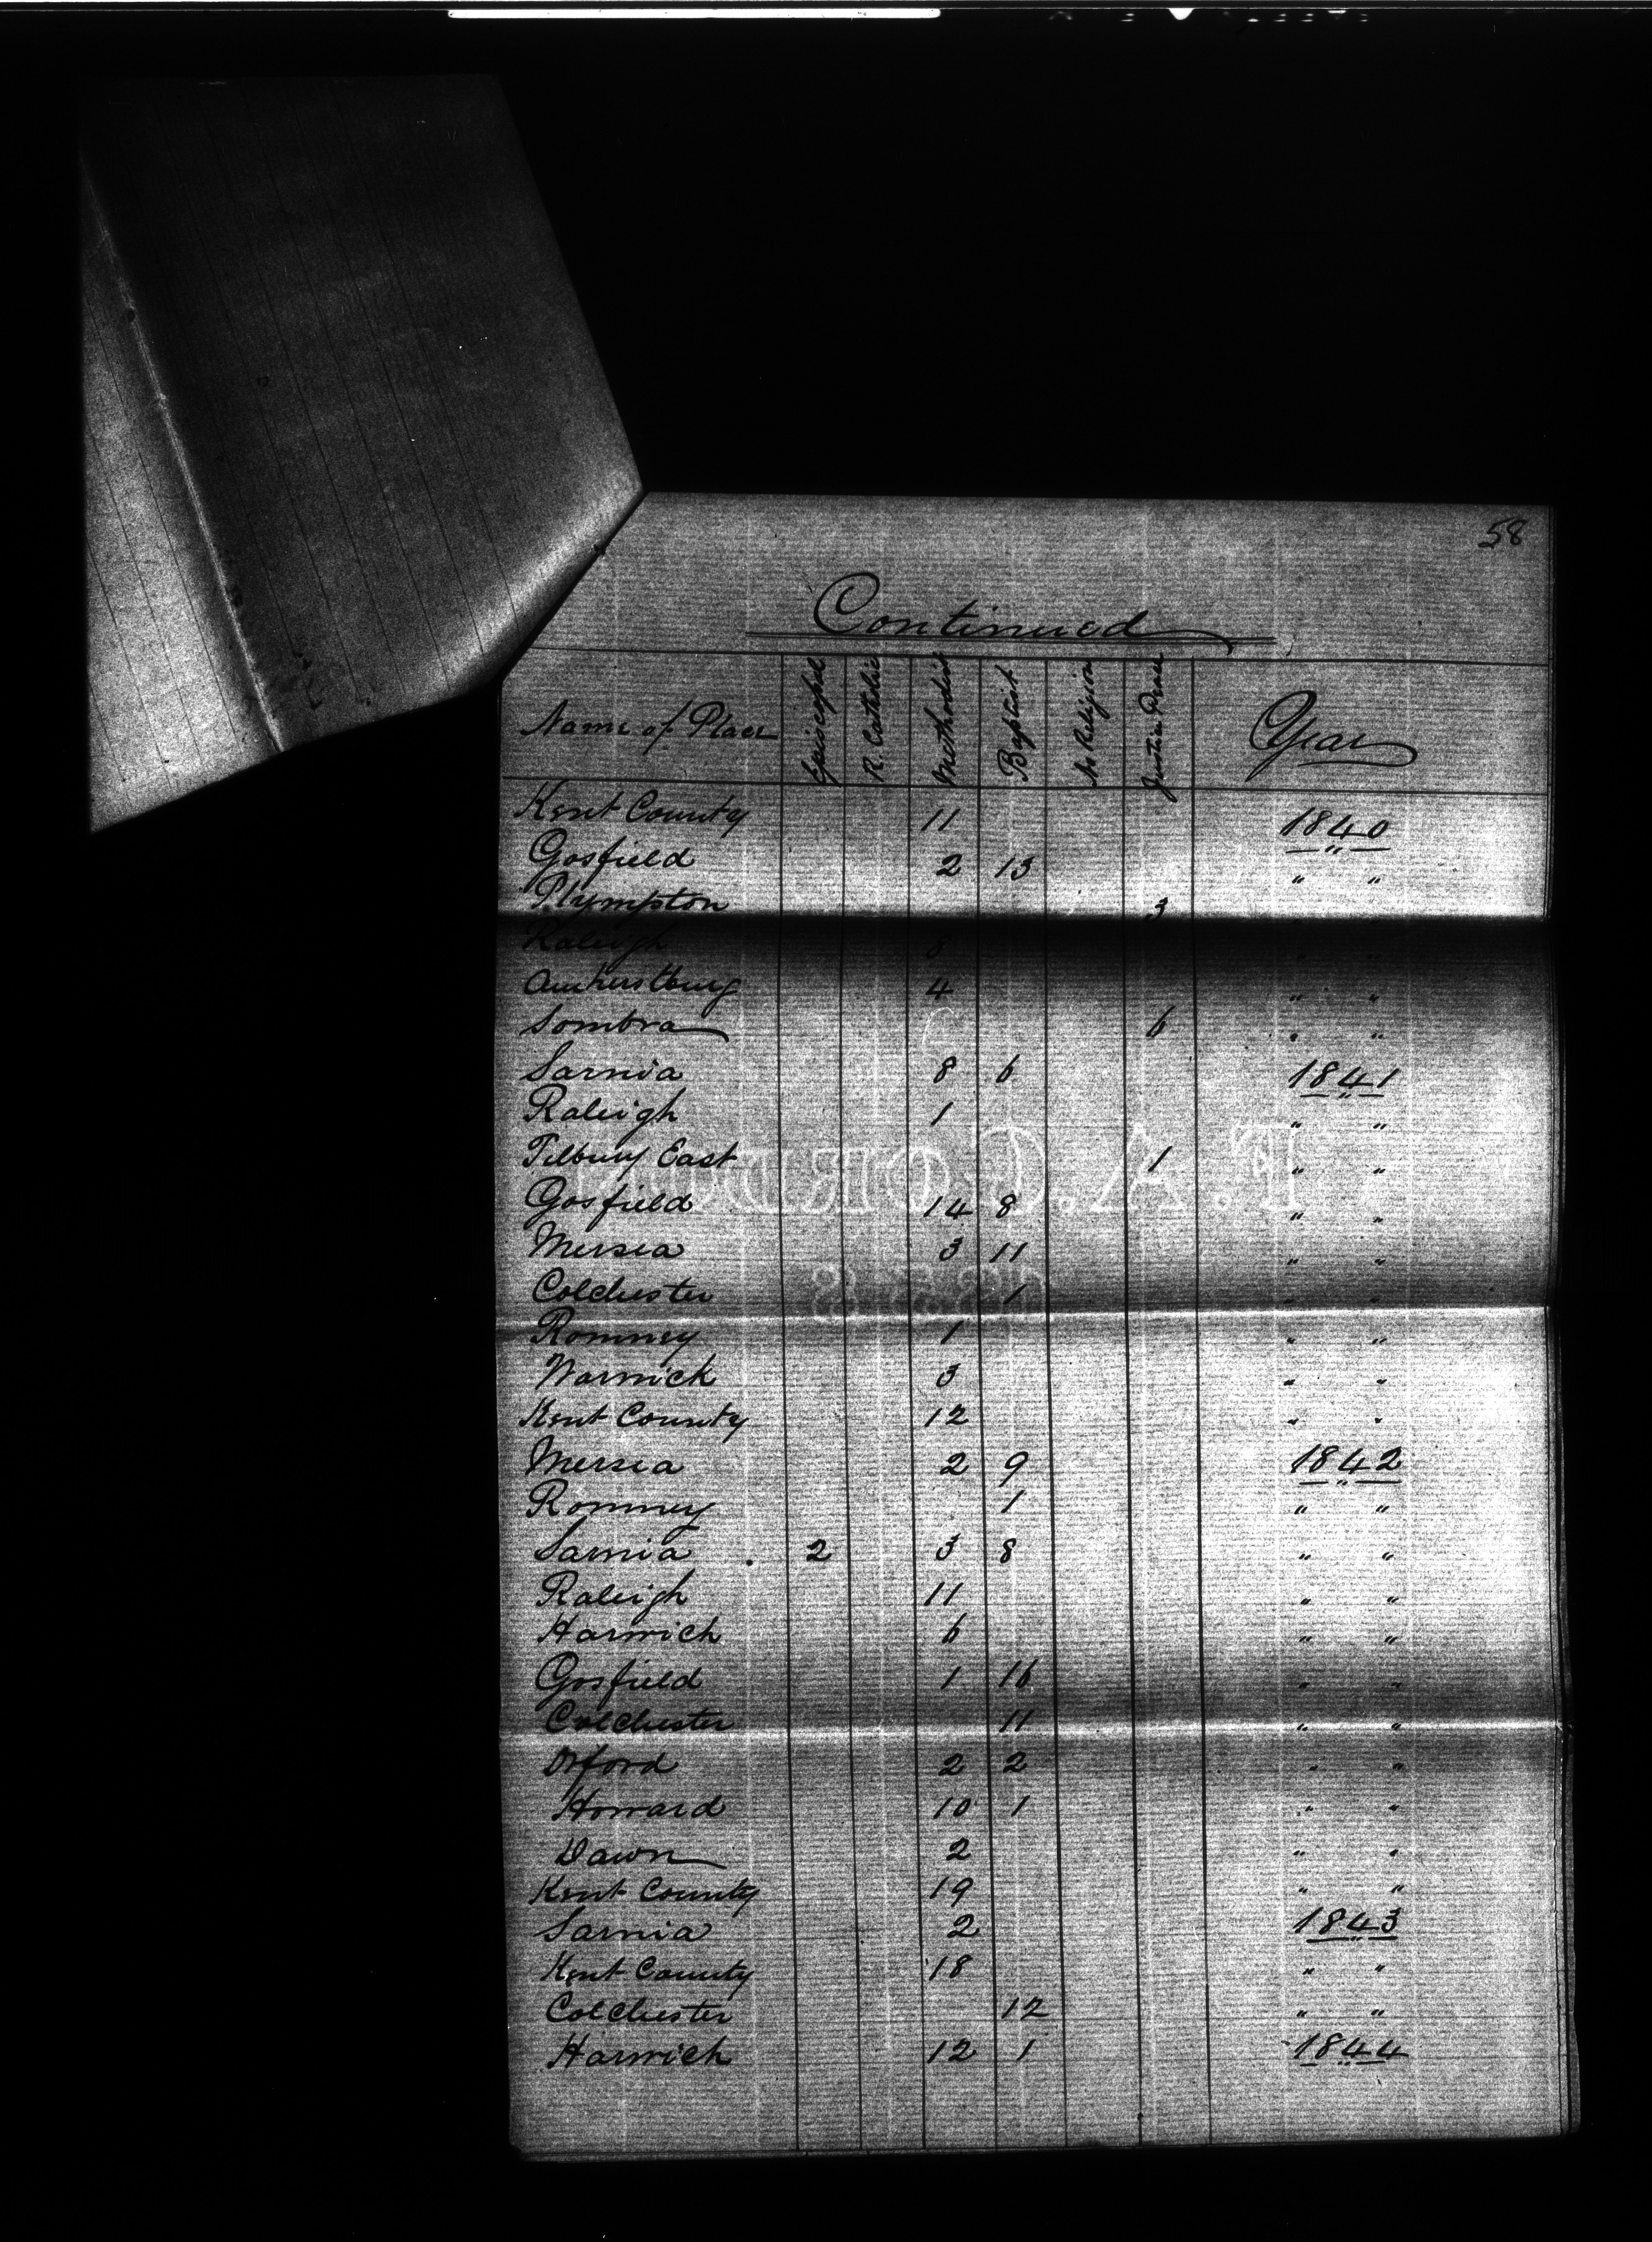 58
Continued
Name of Place Episcopal R. Catholic Methodist Baptist No Religion Justice Peace Year
Kent County 11 1840
Gosfield 2 13 " "
Plympton 3
Raleigh 8 " "
Amherstburg 4 " "
Sombra 6 " "
Sarnia 8 6 1841
Raleigh 1 " "
Tilbury East 1 " "
Gosfield 14 8 " "
Mersea 3 11 " "
Colchester 1 " "
Romney 1 " "
Warwick 3 " "
Kent County 12 " "
Mersea 2 9 1842
Romney 1 " "
Sarnia . 2 3 8 " "
Raleigh 11 " "
Harwich 6 " "
Gosfield 1 16 " "
Colchester 11 " "
Orford 2 2 " "
Howard 10 1 " "
Dawn 2 " "
Kent County 19 " "
Sarnia 2 1843
Kent County 18 " "
Colchester 12 " "
Harwich 12 1 1844